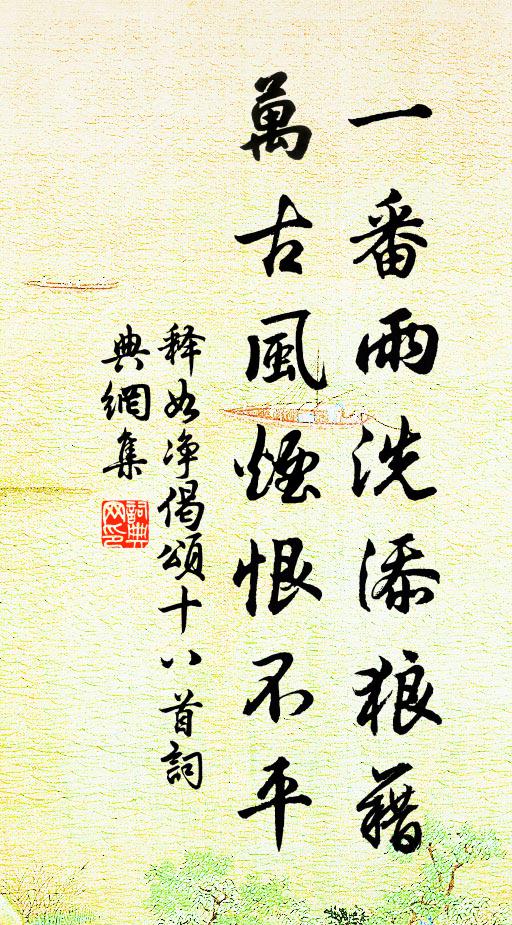 一番雨洗添狼藉
萬古風煙恨不平
释如净偈頌十八首詞
典網集
詞典
网印